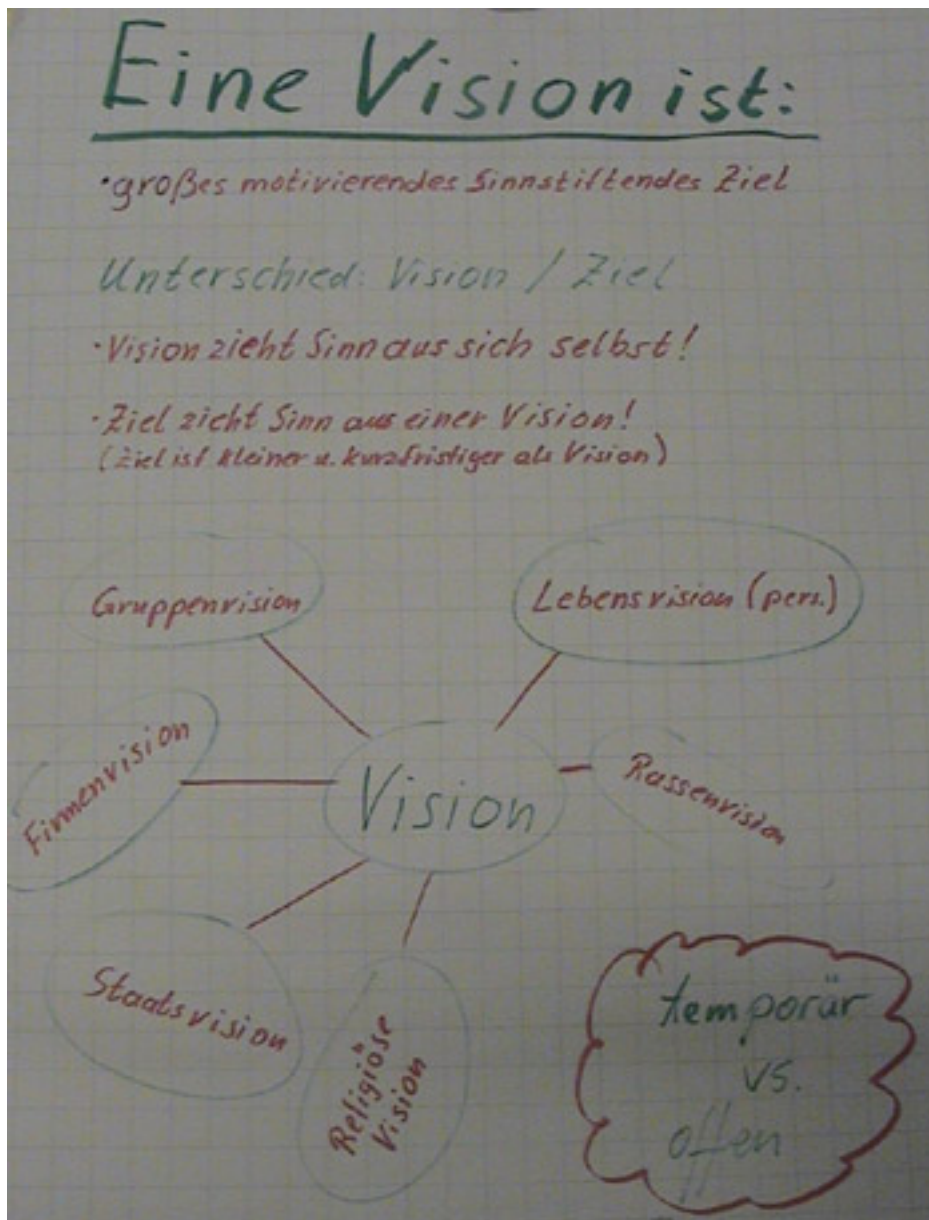 Eine Vision ist:
• großes motivierendes Sinnstiftendes Ziel
Unterschied: Vision / Ziel
• Vision zieht Sinn aus sich selbst!
• Ziel zieht Sinn aus einer Vision!
(Ziel ist kleiner u. kurzfristiger als Vision)
Gruppenvision
Lebensvision (pers.)
Firmenvision
Vision
Rassenvision
Staatsvision
Religiöse
Vision
temporär
vs.
offen